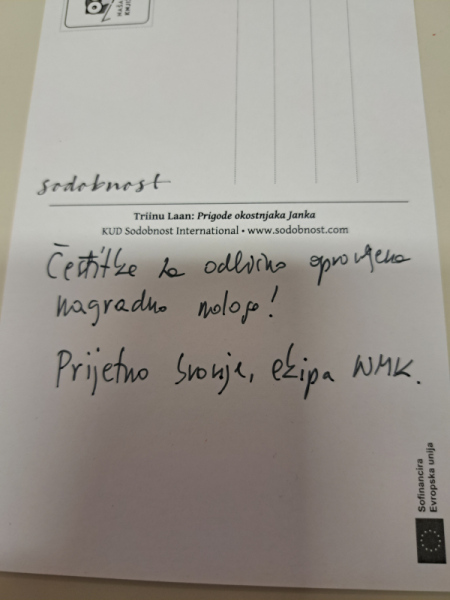 NAŠA
sodobnost
Triinu Laan: Prigode okostnjaka Janka
KUD Sodobnost International • www.sodobnost.com
Čestitke za odlično opravljeno
nagradno nalogo!
Prijetno branje, ekipa WMK.
Sofinancira
Evropska unija